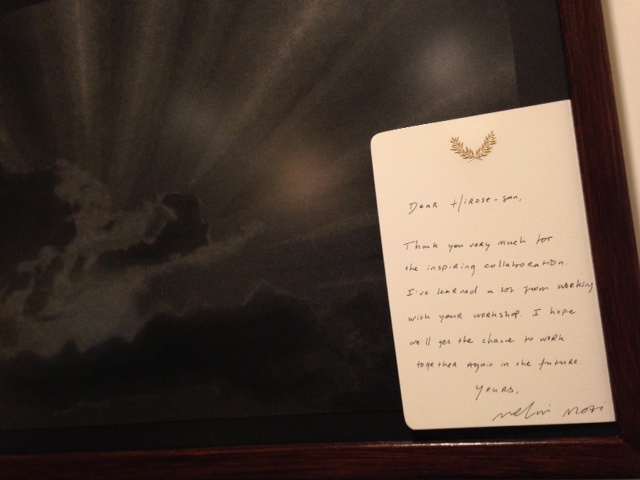 Dear Hirose-san,
Thank you very much for
the inspiring collaboration.
I've learned a lot from working
with your workshop. I hope
we'll get the chance to work
together again in the future.
Yours,
Melvin Moti